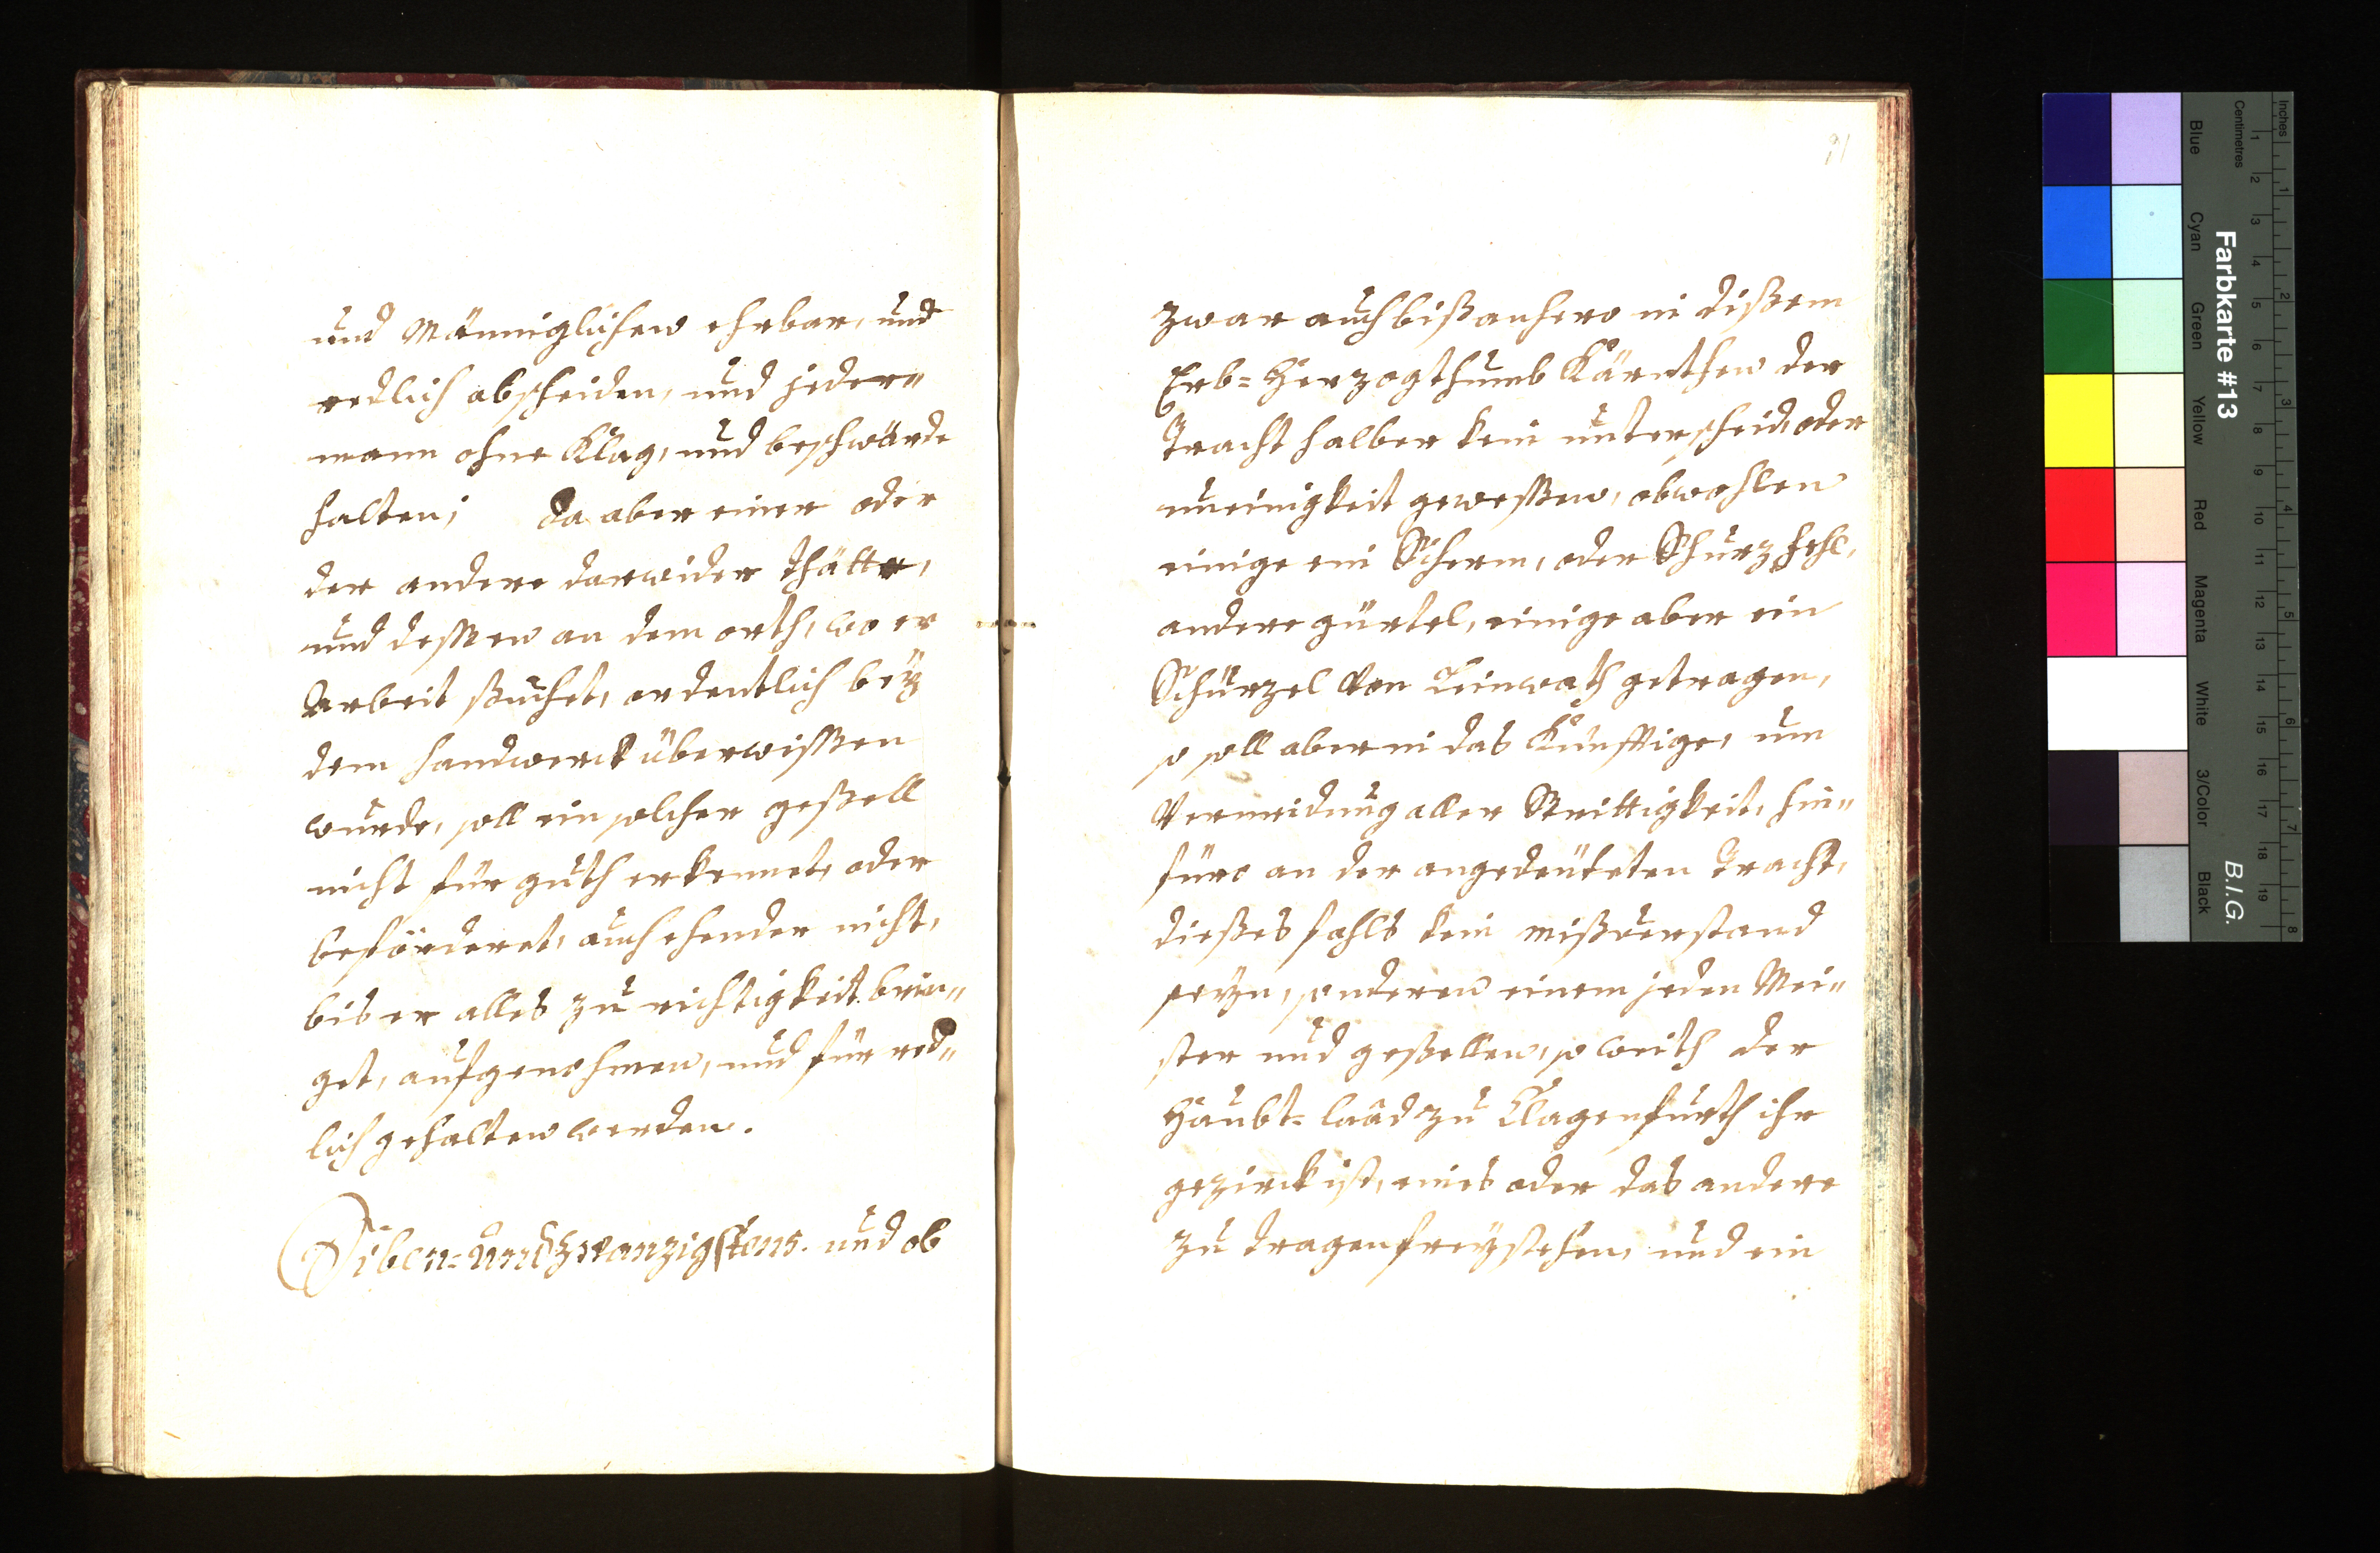 und Männiglichen ehrbar, und
redlich abscheiden, und jeder„
mann ohne Klag, und beschwärde
halten; da aber einer oder
der andere darwider thätte,
und dessen an dem orth, wo er
Arbeit suchet, ordentlich beÿ
dem handwerck überwissen
wurde, soll ein solcher gesell
nicht für guth erkennet, oder
beförderet, auch ehender nicht,
bis er alles zu richtigkeit brin„
get, aufgenohmen, und für red„
lich gehalten werden.
Siben= und zwanzigstens. und ob
zwar auch bißanhero in dißem
Erb= Herzogthumb Kärnthen der
Tracht halber kein unterscheid, oder
uneinigkeit gewessen, obwohlen
einige ein Scherm, oder Schurzfehl,
andere gürtel, einige aber ein
Schürzel von Leinwath getragen,
so soll aber in das Künfftige, um
Vermeidung aller Strittigkeit, hin„
füro an der angedeuteten Tracht,
dießes fahls kein mißverstand
seÿn, sonderen einem jeden Mei„
ster und gesellen, so weith der
Haubt= laad zu Clagenfurth ihr
gezirck ist, eines oder das andere
zu tragen freÿstehen, und ein
Farbkarte #13
B.I.G.
Inches
Centimetres
1 2 3 4 5 6 7 8
1 2 3 4 5 6 7 8 9 10 11 12 13 14 15 16 17 18 19
Blue
Cyan
Green
Yellow
Red
Magenta
White
3/Color
Black